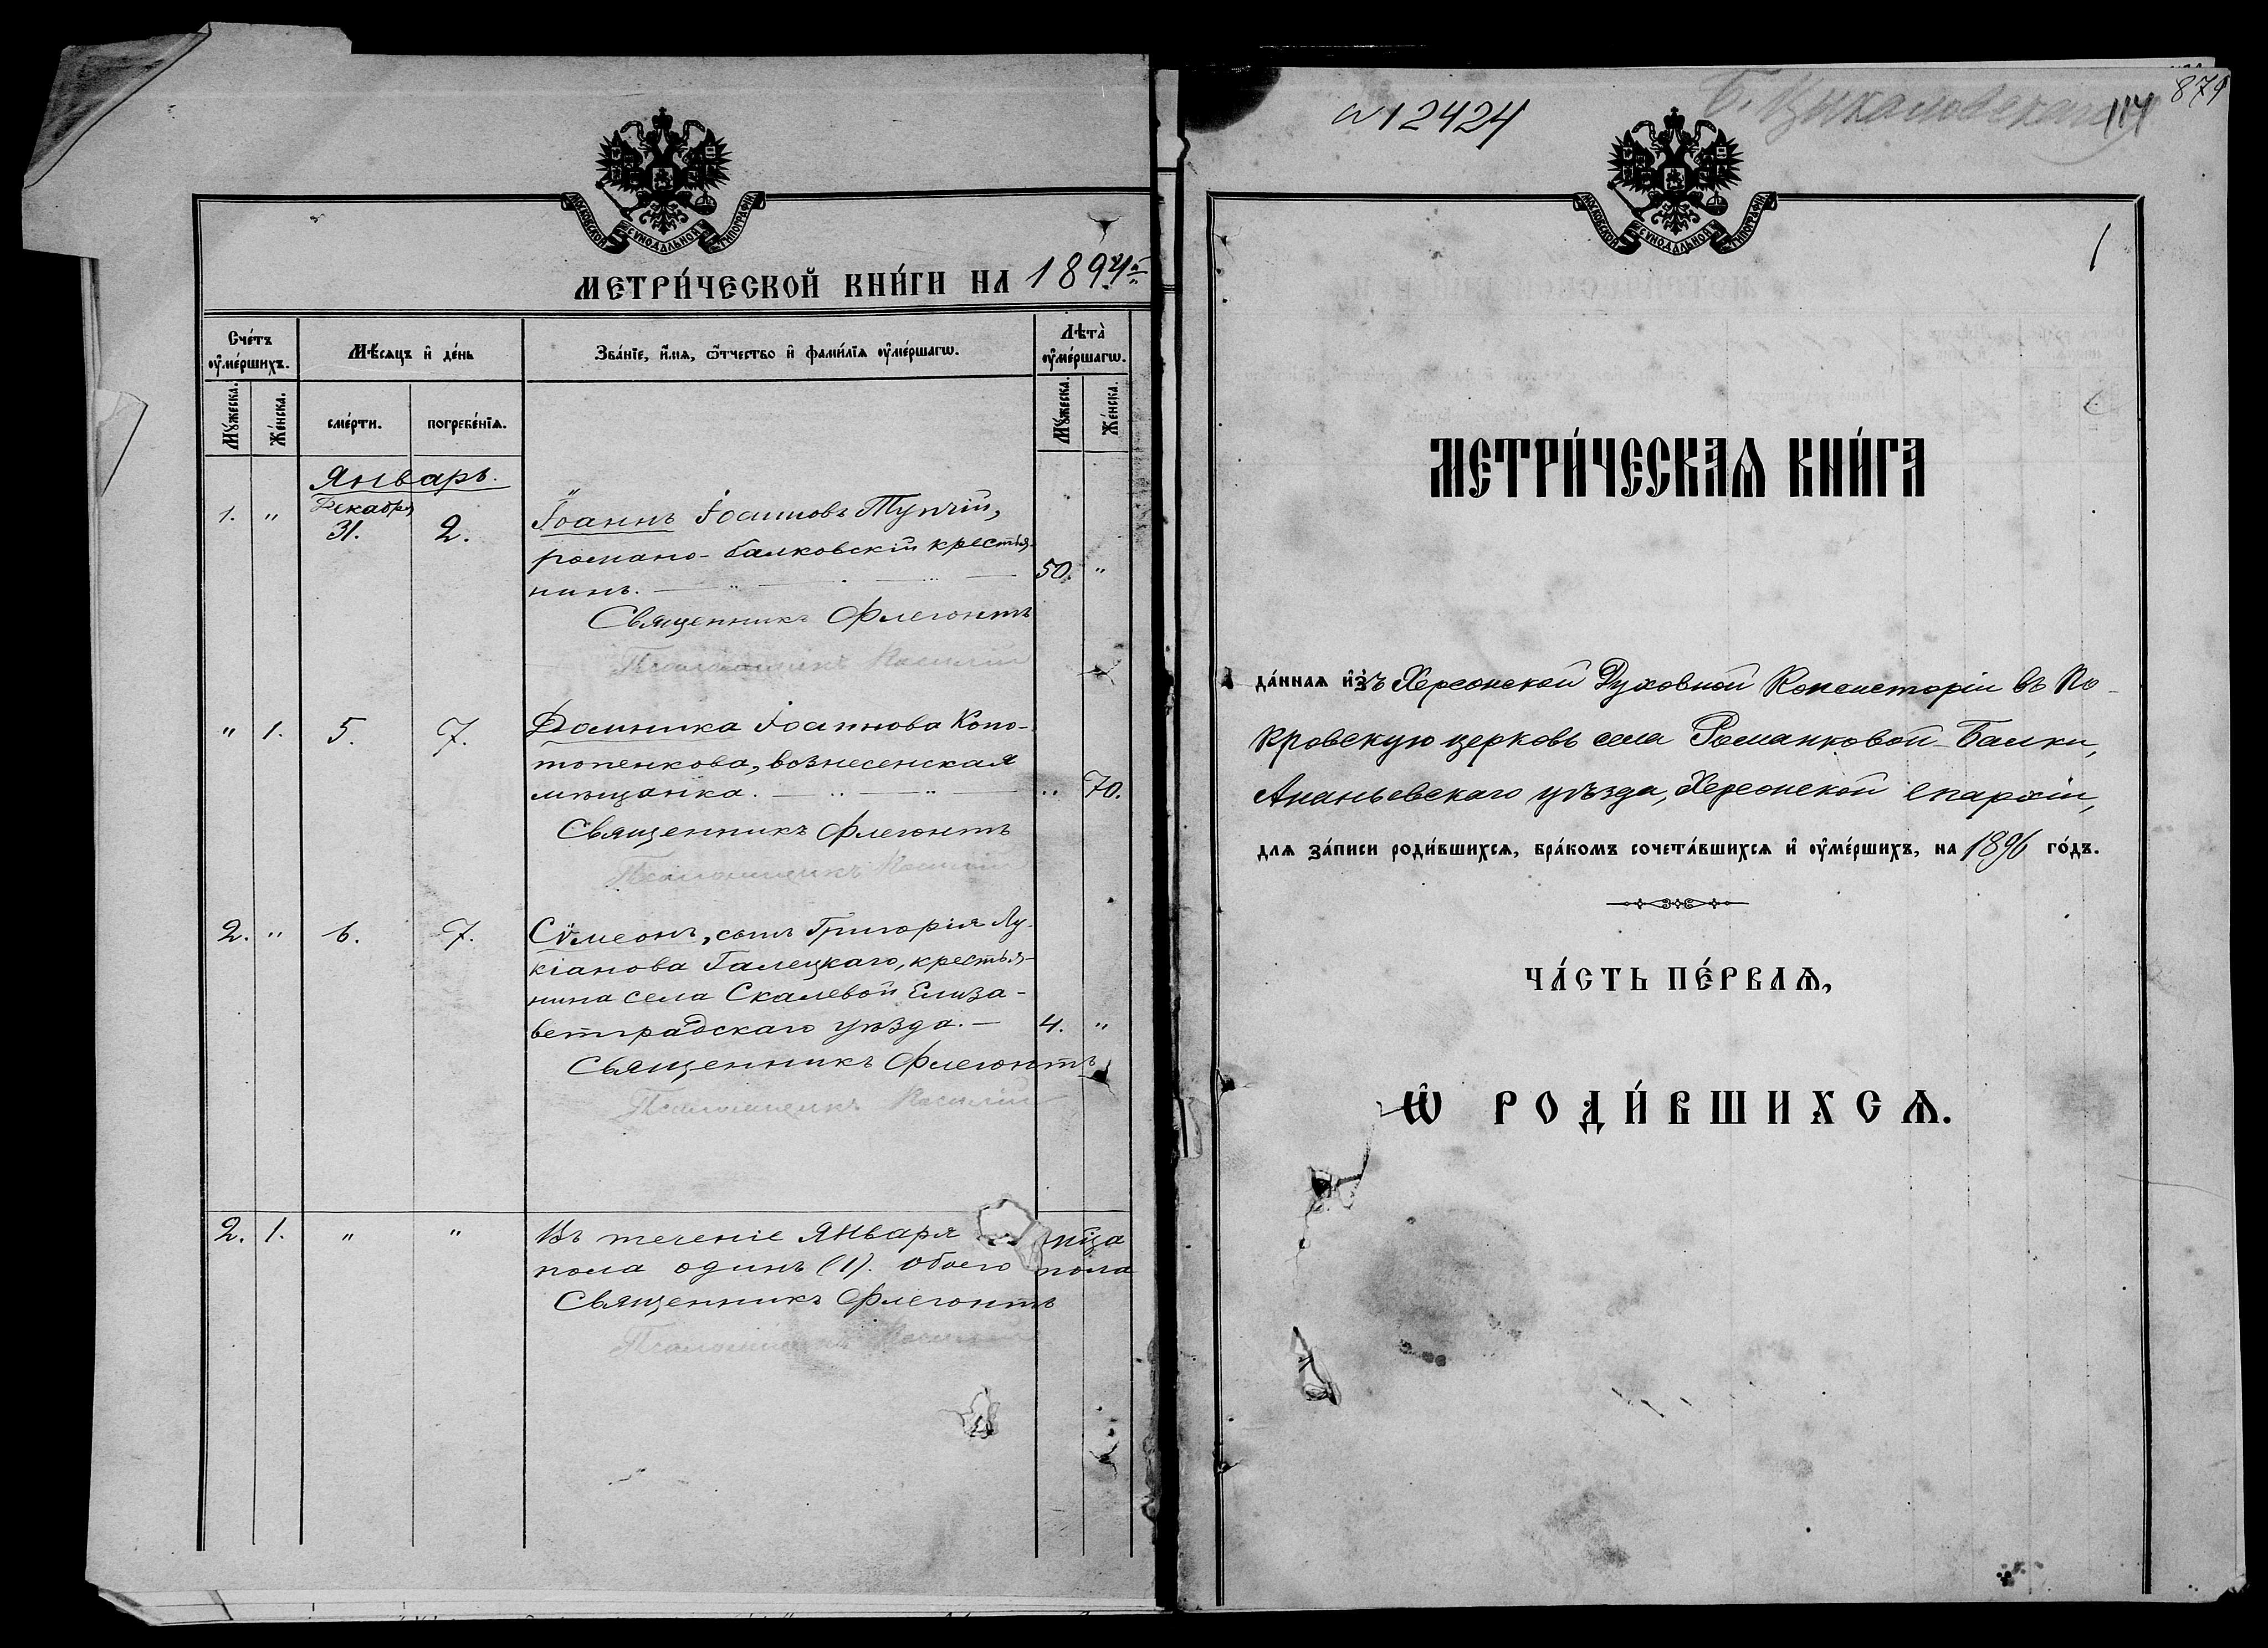 МОСКОВСКОЙ СУНОДАЛЬНОЙ ТИПОГРАФІИ
МЕТРИ́ЧЕСКОЙ КНИ́ГИ НА 1894й
Сче́тъ ᲂу҆ме́ршихъ.
Мѣ́сяцъ и҆ де́нь
Зва́нїе, и҆́мя, ѻ҆́тчество и҆ фами́лїя ᲂу҆ме́ршагѡ.
Лѣта̀ ᲂу҆ме́ршагѡ.
Мꙋ́жеска.
Же́нска.
сме́рти.
погребе́нїѧ.
Мꙋ́жеска.
Же́нска.
Январь.
1. " Декабря 31. 2. Іоаннъ Іоанновъ Тупчій,
романо-балковскій крестья-
нинъ. 50. "
Священникъ Флегонтъ
Псаломщикъ Василій
" 1. 5. 7. Домника Іоаннова Коно-
топенкова, вознесенская
мѣщанка. " 70.
Священникъ Флегонтъ
Псаломщикъ Василій
2. " 6. 7. Сѵмеонъ, сынъ Григорія Лу-
кіанова Галецкаго, крестья-
нина села Скалевой Елиза-
ветградскаго уѣзда. 4. "
Священникъ Флегонтъ
Псаломщикъ Василій
2. 1. " " Въ теченіе Января
пола одинъ (1). Обоего пола
Священникъ Флегонтъ
Псаломщикъ Василій
№ 12424
879
114
МОСКОВСКОЙ СУНОДАЛЬНОЙ ТИПОГРАФІИ
1
МЕТРИ́ЧЕСКАѦ КНИ́ГА
да́нная и҆зъ Херсонской Духовной Консисторіи въ По-
кровскую церковь села Романковой-Балки,
Ананьевскаго уѣзда, Херсонской епархіи,
для за́писи роди́вшихся, бра́комъ сочета́вшихся и҆ ᲂу҆ме́ршихъ, на 1896 го́дъ.
ЧА́СТЬ ПЕ́РВАѦ,
Ѽ РОДИ́ВШИХСѦ.